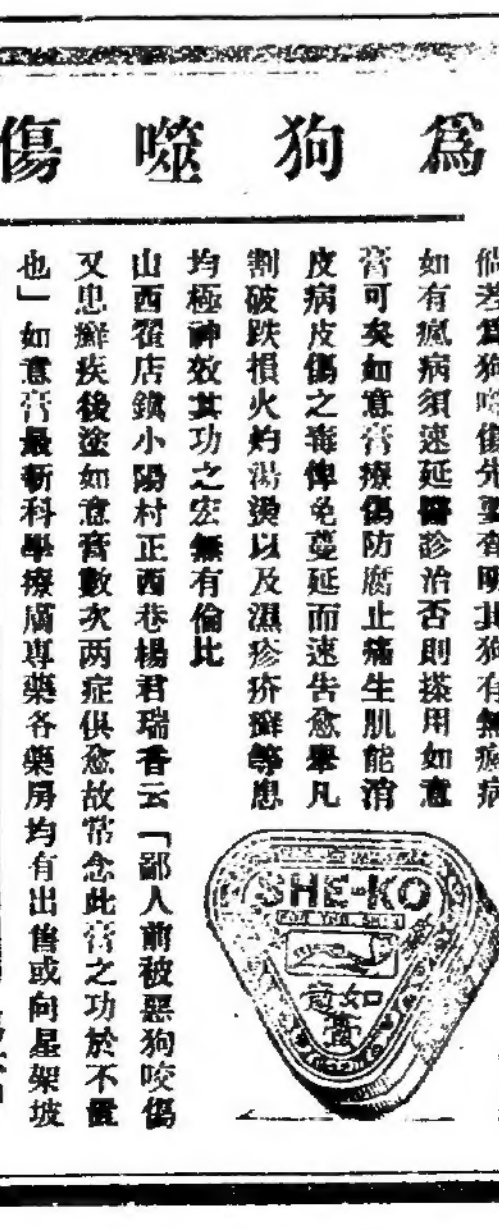 爲狗噬傷
倘若爲狗噬傷先要查明其狗有無瘋病
如有瘋病須速延醫診治否則搽用如意
膏可矣如意膏療傷防腐止痛生肌能消
皮病皮傷之毒俾免蔓延而速告愈舉凡
割破跌損火灼湯燙以及濕疹疥癬等患
均極神效其功之宏無有倫比
山西霍店鎮小陽村正西巷楊君瑞香云「鄙人前被惡狗咬傷
又患癬疾後塗如意膏數次两症俱愈故常念此膏之功於不置
也」如意膏最新科學療膚專藥各藥房均有出售或向星架坡
SHE-KO
FOR THE SKIN
如意膏